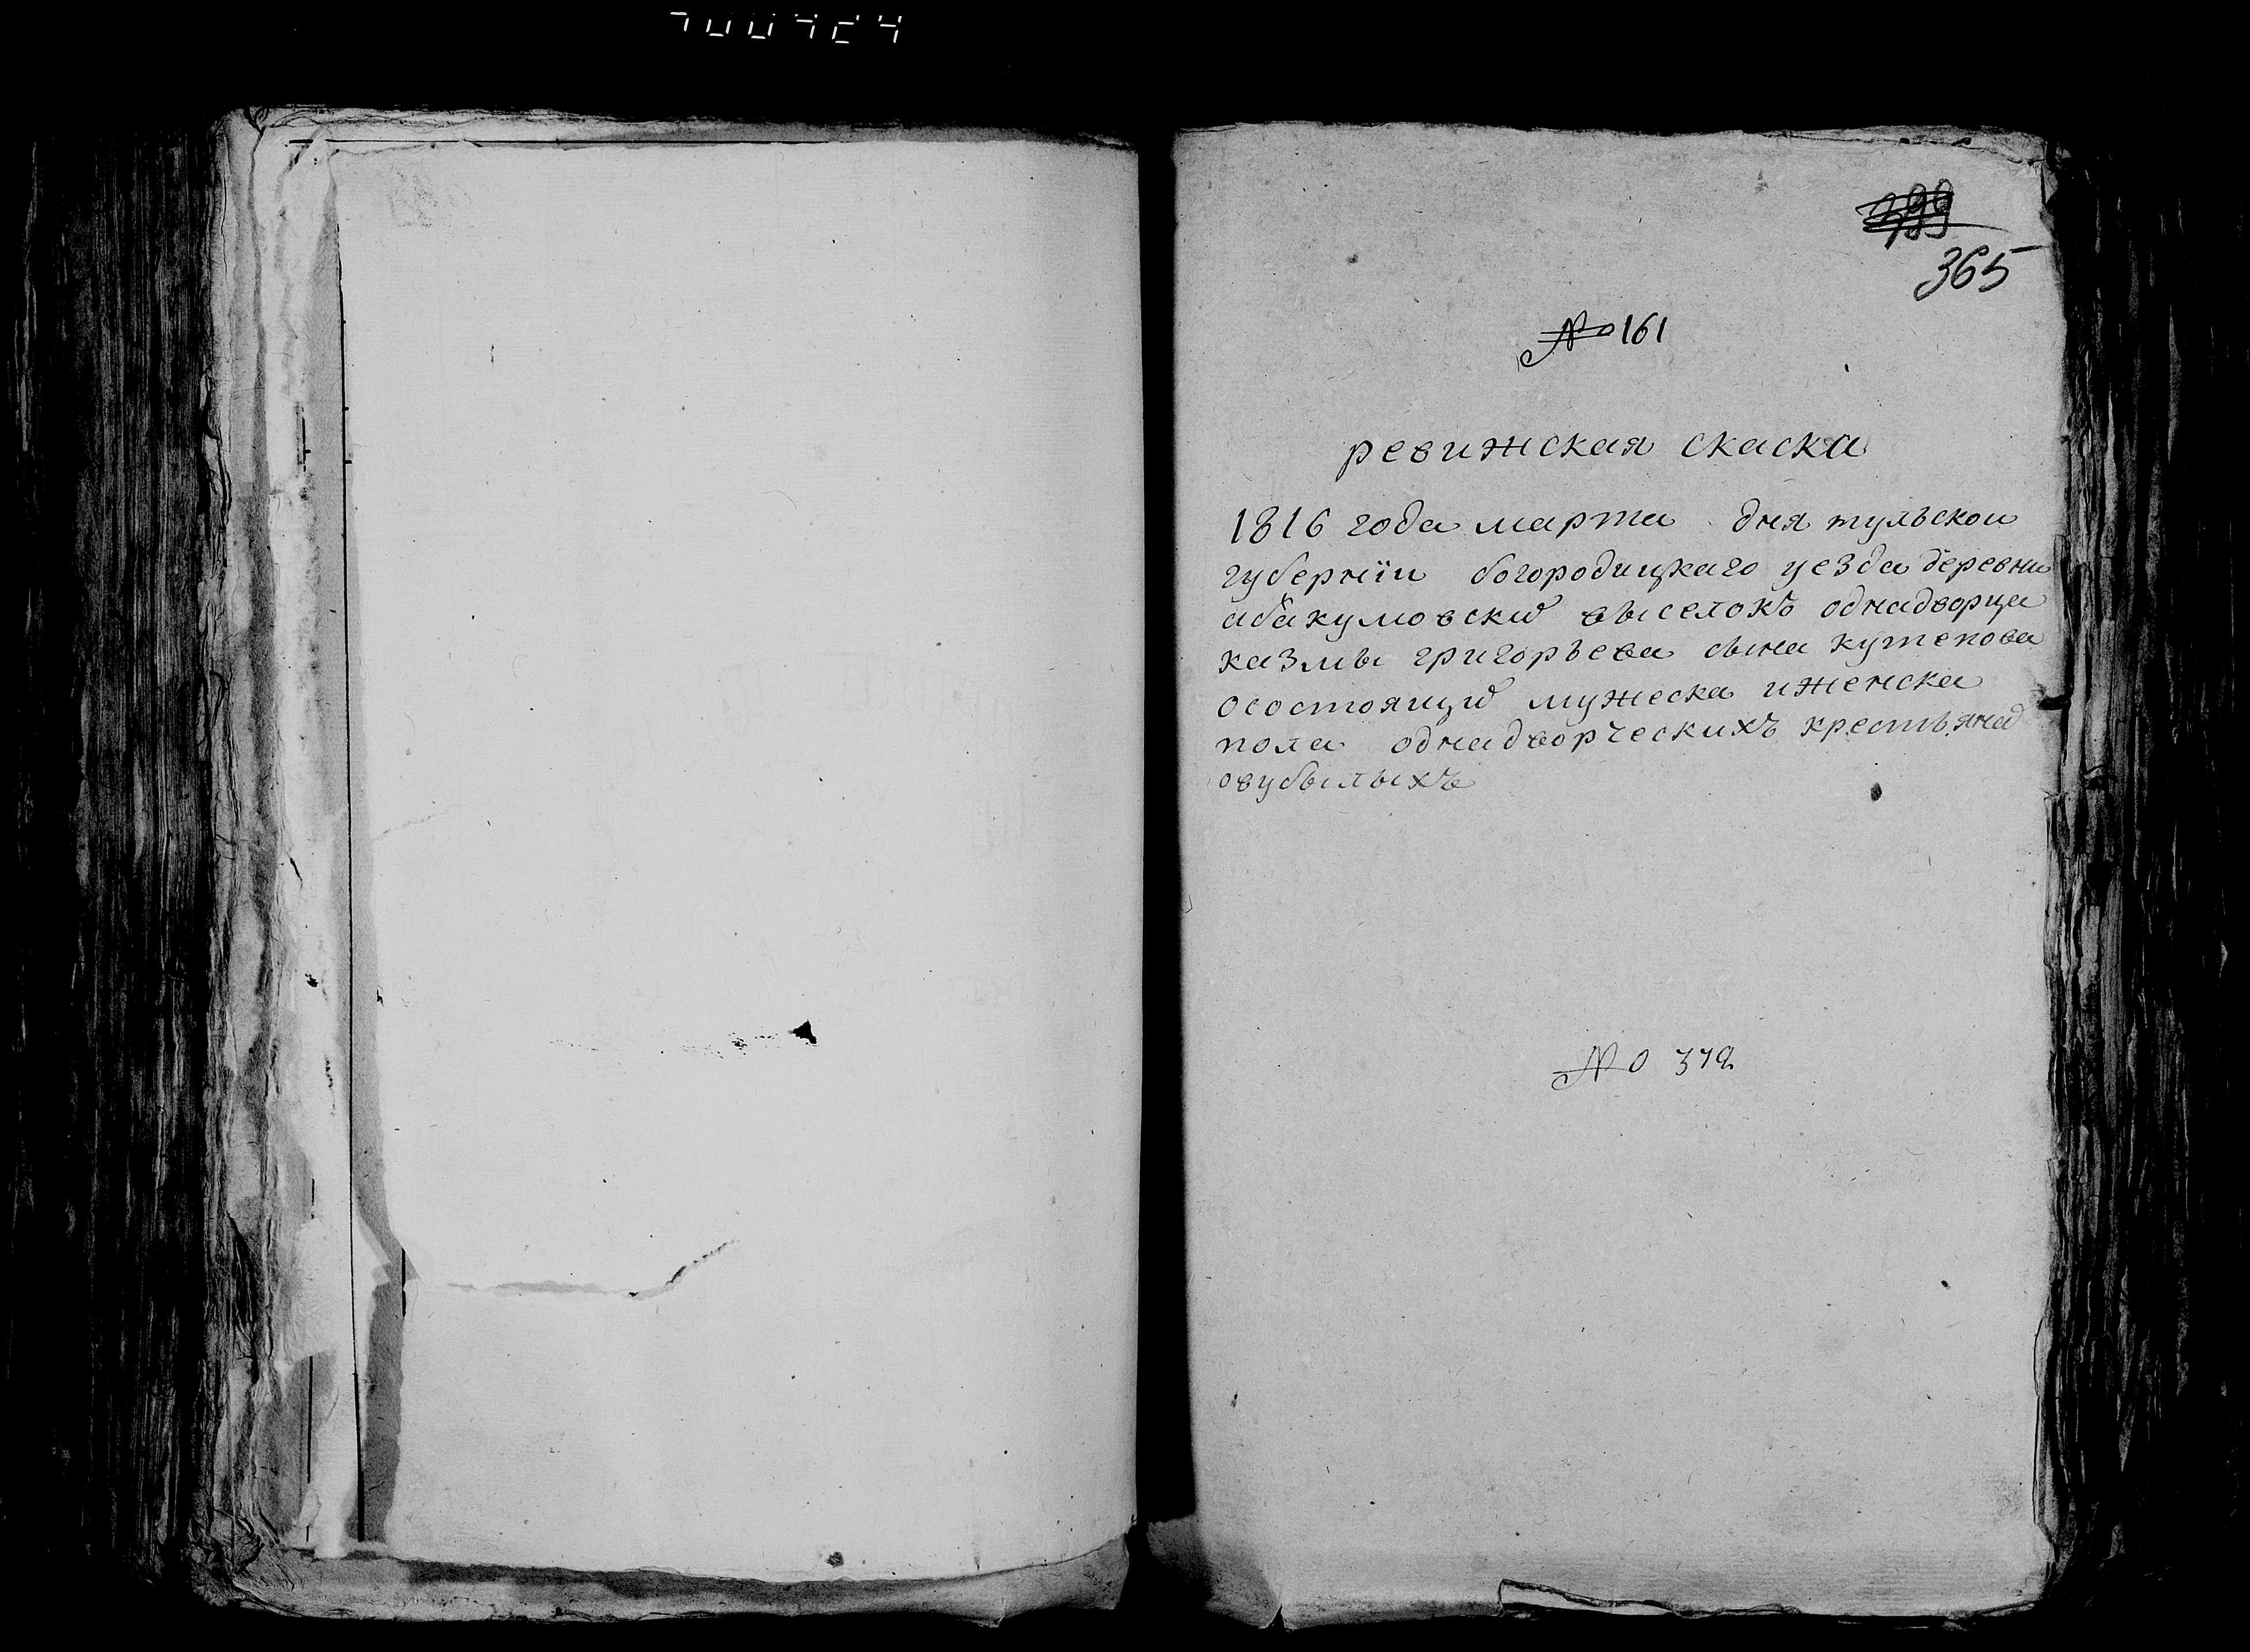 399
365
№ 161
ревижская скаска
1816 года марта дня тульскои
губернїи богородицкаго уезда деревни
абакумовски выселокъ однадворца
казмы григорьева сына кутепова
осостоящи мужеска иженска
пола однадворческихъ крестьяна
овубылыхъ
№